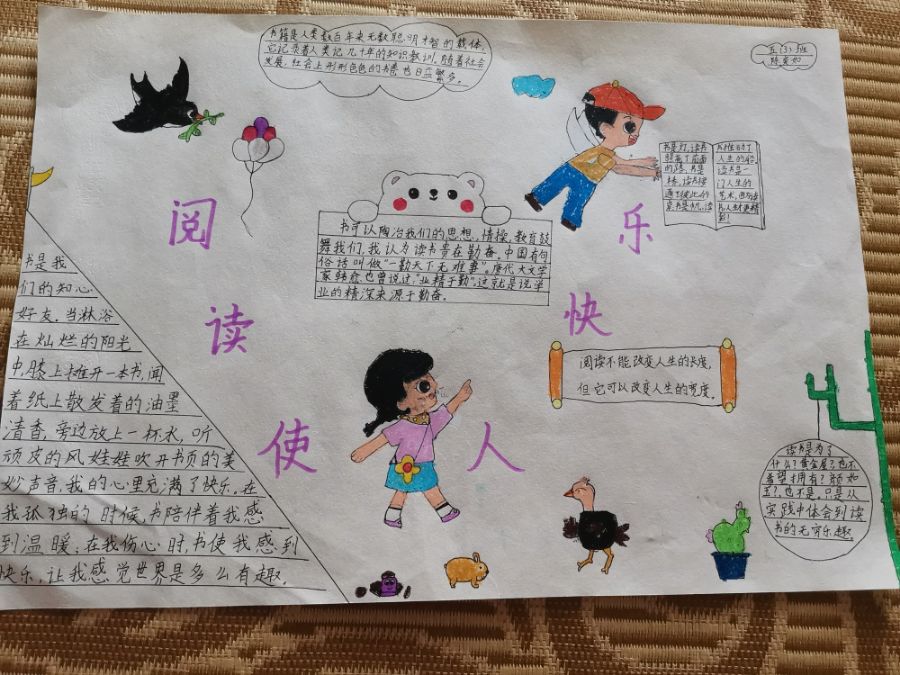 书籍是人类数百年来无数聪明才智的载体,
它记录着人类记几十年的知识教训,随着社会
发展,社会上形形色色的书籍也日益繁多。
五(3)班
阅
读
使
人
快
乐
书可以陶冶我们的思想、情操,教育鼓
舞我们,我认为读书贵在勤奋,中国有句
俗话叫做“一勤天下无难事”。唐代大文学
家韩愈也曾说过,“业精于勤”。这就是说学
业的精深来源于勤奋。
书是灯,读书
照亮了前面
的路,书是
人生的
读书是一
门人生的
书是我
们的知心
好友,当淋浴
在灿烂的阳光
中,膝上摊开一本书,闻
着纸上散发着的油墨
清香,旁边放上一杯水,听
顽皮的风娃娃吹开书页的美
妙声音,我的心里充满了快乐。在
我孤独的时候,书陪伴着我感
到温暖;在我伤心时,书使我感到
快乐,让我感觉世界是多么有趣。
阅读不能改变人生的长度,
但它可以改变人生的宽度。
读书是为了
什么?黄金屋?也不
希望拥有?颜如
玉?也不是。只是从
实践中体会到读
书的无穷乐趣